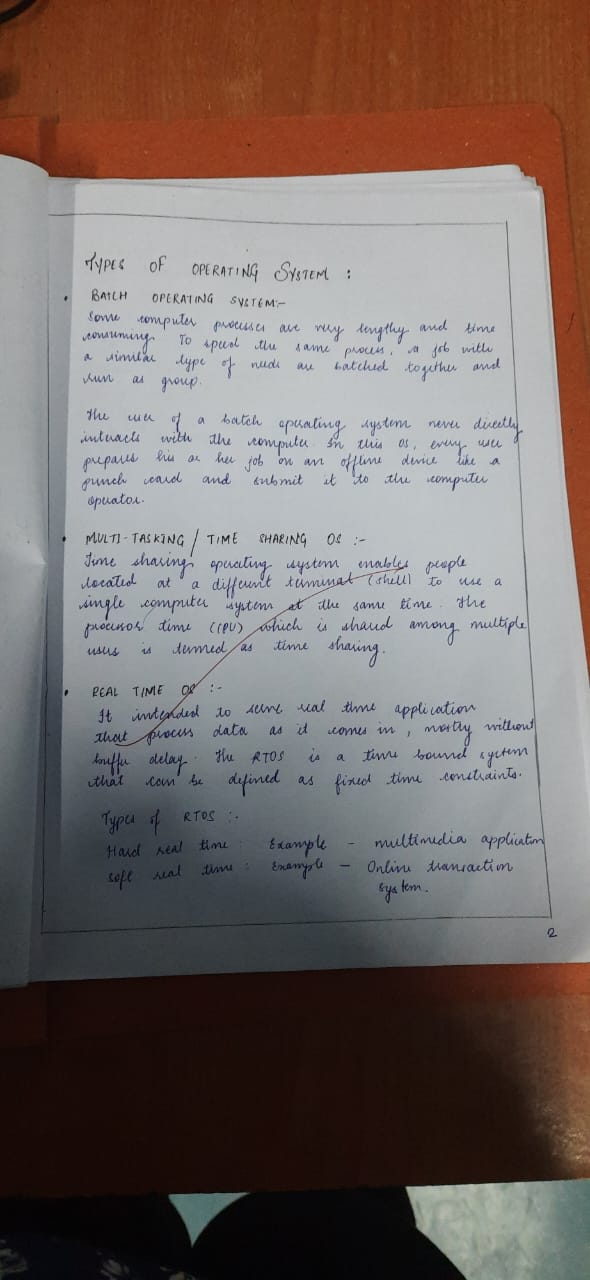 TYPES OF OPERATING SYSTEM :
• BATCH OPERATING SYSTEM:-
Some computer processes are very lengthy and time
consuming. To speed the same process, a job with
a similar type of needs are batched together and
run as group.
The user of a batch operating system never directly
interacts with the computer. In this OS, every user
prepares his or her job on an offline device like a
punch card and submit it to the computer
operator.
• MULTI-TASKING / TIME SHARING OS :-
Time sharing operating system enables people
located at a different terminal (shell) to use a
single computer system at the same time. The
processor time (CPU) which is shared among multiple
users is termed as time sharing.
• REAL TIME OS :-
It intended to serve real time application
that process data as it comes in, mostly without
buffer delay. The RTOS is a time bound system
that can be defined as fixed time constraints.
Types of RTOS :-
Hard real time : Example - multimedia application
Soft real time : Example - Online transaction
system.
2